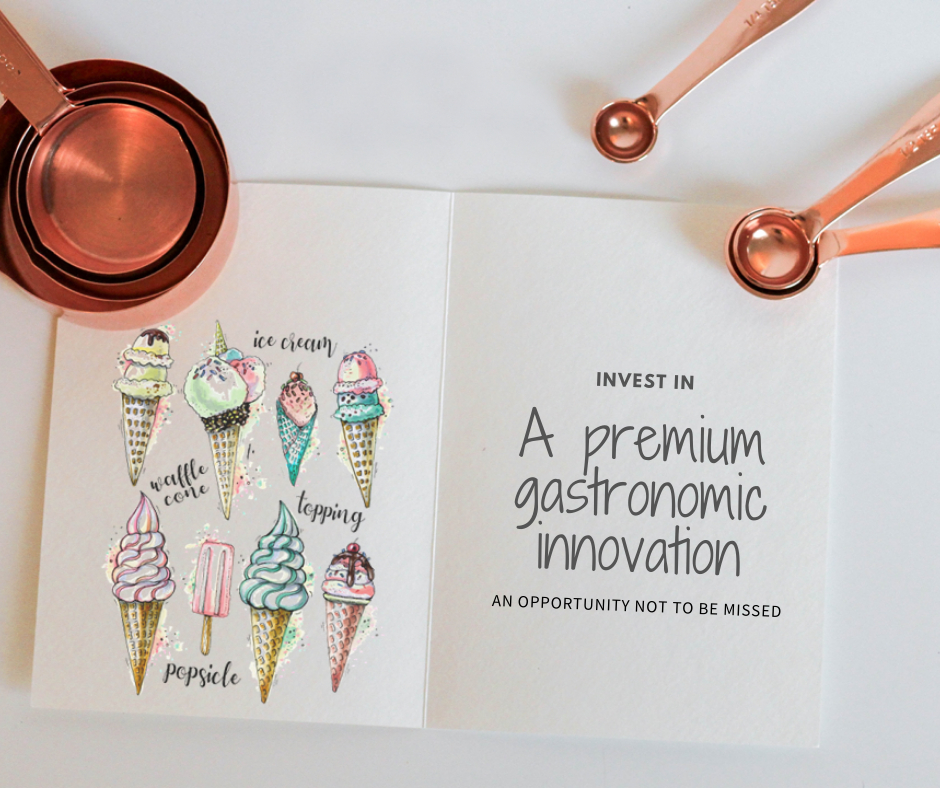 ice cream
waffle
cone
topping
popsicle
INVEST IN
A premium
gastronomic
innovation
AN OPPORTUNITY NOT TO BE MISSED